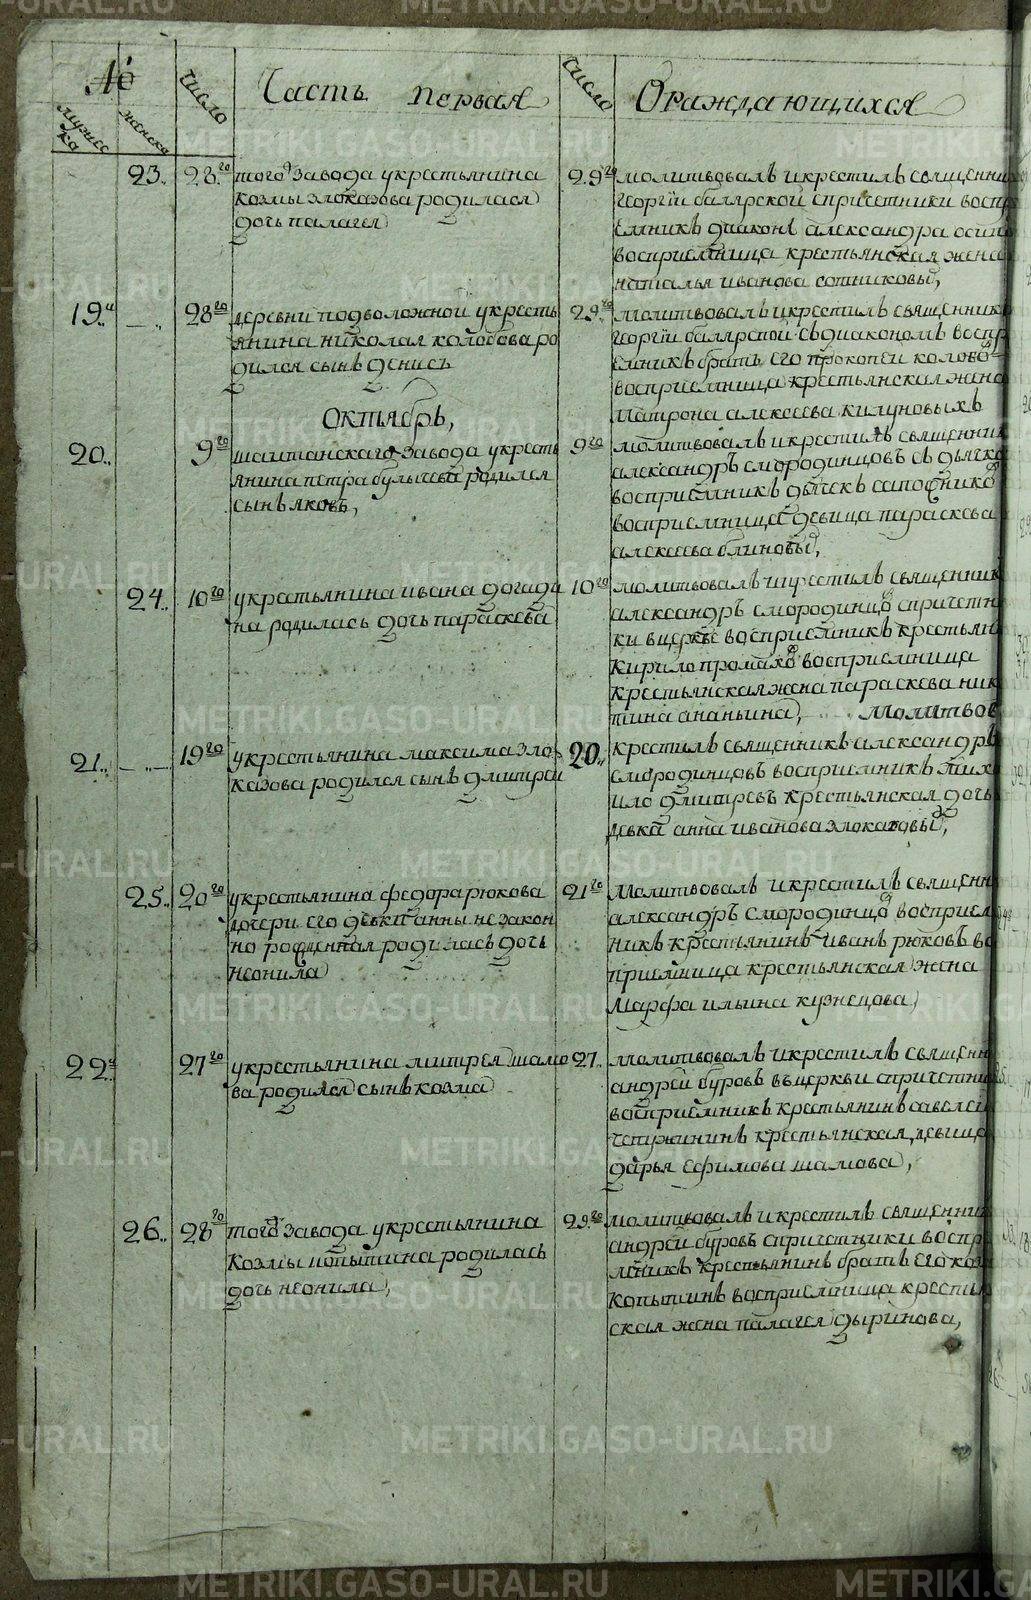 №
мужеска
женска
число
Часть первая
число
Ораждающихся
23.
28го
того завода укрестьянина
козмы злоказова родилася
дочь палагея
29го
молитвовалъ икрестилъ священни
георгiй баллрской спричетники воспр
емникъ диаконъ александра
восприемница крестьянская жена
наталья иванова сотниковы,
19.
28го
деревни подволожной укресть
янина николая колобова ро
дился сынъ денисъ
29го
молитвовалъ икрестилъ священнико
георгiй баллрской сдиакономъ воспр
емникъ братъ его прокопей колобо
восприемница крестьянская жена
матрона алексеева килуновыхъ
Октябрь,
20.
9го
шайтанскаго завода укресть
янина петра булычева родился
сынъ яковъ,
9го
молитвовалъ икрестилъ священник
александръ смородинцовъ съ дьячко
восприемникъ дьячекъ сапожнико
восприемницеи девица параскева
алексеева блиновы,
24.
10го
укрестьянина ивана догада
на родилась дочь параскева
10го
молитвовалъ икрестилъ священник
александръ смородинцо спричетн
ки вцеркве восприемникъ крестьян
кирило промахо восприемница
крестьянская жена параскева ник
тина ананьина, молитвов
21.
19го
укрестьянина максима зло
казова родился сынъ дмитрей
20.
крестилъ священникъ александръ
смородинцовъ восприемникъ мих
ило дмитревъ крестьянская дочь
девка анна иванова злоказовы,
25.
20го
укрестьянина федора рюкова
дочери его девки анны не закон
но рожденная родилась дочь
неонила
21го
молитвовалъ икрестилъ священн
александръ смородинцо восприем
никъ крестьянинъ иванъ рюковъ во
приемница крестьянская жена
марфа ильина кузнецова
22.
27го
укрестьянина митрея шамо
ва родился сынъ козма
27.
молитвовалъ икрестилъ священн
андрей буровъ вцеркви спричетни
восприемникъ крестьянинъ савелей
крестьянская девица
дарья ефимова шамова,
26.
28го
того завода укрестьянина
козмы копытина родилась
дочь неонила,
29го
молитвовалъ икрестилъ священник
андрей буровъ спричетники воспр
емникъ крестьянинъ братъ его коз
копытинъ восприемница крестьян
ская жена палагея дыринова,
METRIKI.GASO-URAL.RU